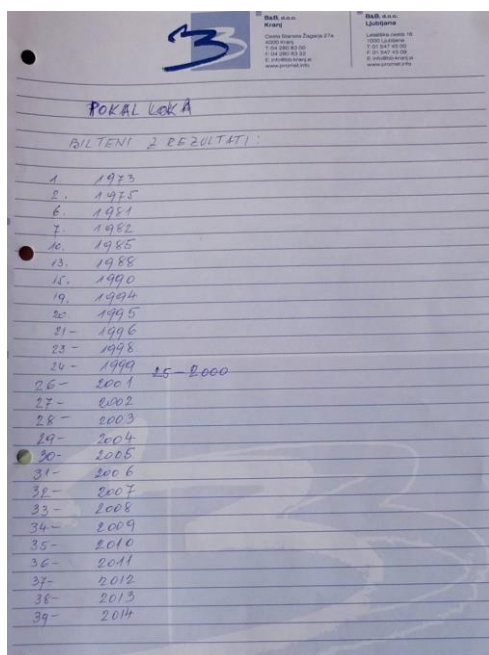 B&B, d.o.o.
Kranj
Cesta Staneta Žagarja 27a
4000 Kranj
T: 04 280 83 00
B&B, d.o.o.
Ljubljana
Letališka cesta 16
1000 Ljubljana
T: 01 547 45 00
www.promet.info
POKAL LOKA
BILTENI Z REZULTATI:
1. 1973
2. 1975
6. 1981
7. 1982
10. 1985
13. 1988
15. 1990
19. 1994
20 1995
21- 1996
23- 1998
24- 1999 25-2000
26- 2001
27- 2002
28- 2003
29- 2004
30- 2005
31- 2006
32- 2007
33- 2008
34- 2009
35- 2010
36- 2011
37- 2012
38- 2013
39- 2014